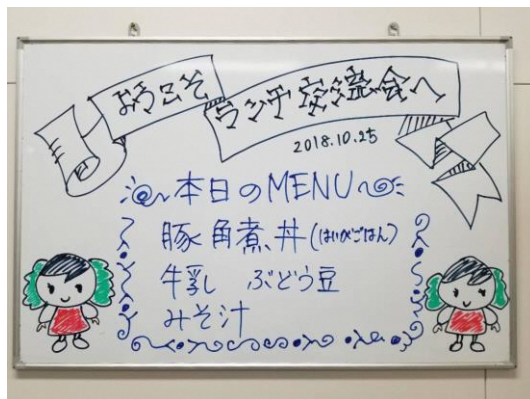 ようこそ
ランチ交流会へ
2018.10.25
本日のMENU
豚角煮丼(はいがごはん)
牛乳 ぶどう豆
みそ汁